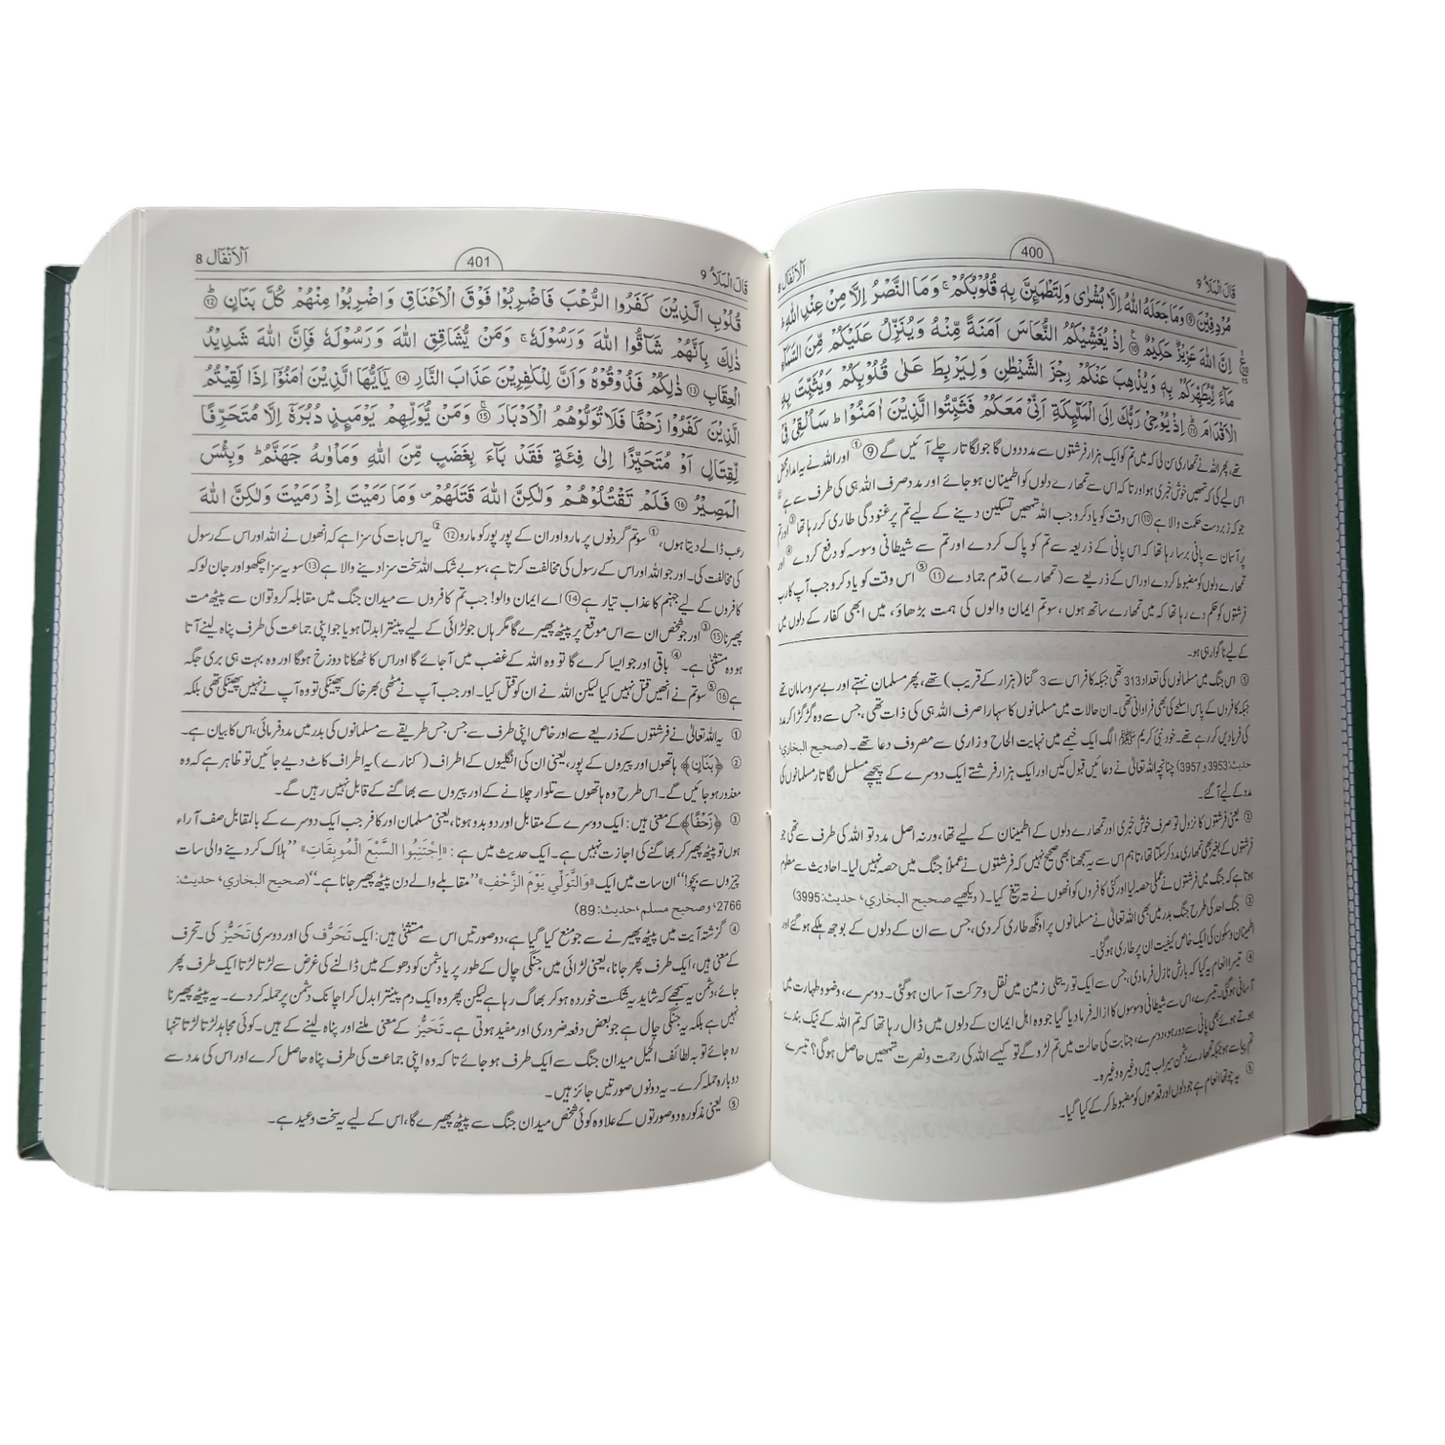 قَالَ الْمَلَاُ 9
400
اَلْاَنْفَال 8
مُرْدِفِيْنَ ۹ وَمَا جَعَلَهُ اللّٰهُ اِلَّا بُشْرٰى وَلِتَطْمَىِٕنَّ بِهٖ قُلُوْبُكُمْ ۚ وَمَا النَّصْرُ اِلَّا مِنْ عِنْدِ اللّٰهِ ؕ
اِنَّ اللّٰهَ عَزِيْزٌ حَكِيْمٌ ۱۰ اِذْ يُغَشِّيْكُمُ النُّعَاسَ اَمَنَةً مِّنْهُ وَيُنَزِّلُ عَلَيْكُمْ مِّنَ السَّمَآءِ
مَآءً لِّيُطَهِّرَكُمْ بِهٖ وَيُذْهِبَ عَنْكُمْ رِجْزَ الشَّيْطٰنِ وَلِيَرْبِطَ عَلٰى قُلُوْبِكُمْ وَيُثَبِّتَ بِهِ
الْاَقْدَامَ ؕ ۱۱ اِذْ يُوْحِيْ رَبُّكَ اِلَى الْمَلٰٓىِٕكَةِ اَنِّيْ مَعَكُمْ فَثَبِّتُوا الَّذِيْنَ اٰمَنُوْا ؕ سَاُلْقِيْ فِيْ
تھے، پھر اللہ نے تمھاری سن لی کہ میں تم کو ایک ہزار فرشتوں سے مدد دوں گا جو لگاتار چلے آئیں گے ⑨ ① اور اللہ نے یہ امداد محض
اس لیے کی کہ تمھیں خوش خبری ہو اور تاکہ اس سے تمھارے دلوں کو اطمینان ہو جائے اور مدد صرف اللہ ہی کی طرف سے ہے ②
جو کہ زبردست حکمت والا ہے ⑩ اس وقت کو یاد کرو جب اللہ تمھیں تسکین دینے کے لیے تم پر غنودگی طاری کر رہا تھا ③ اور تم
پر آسمان سے پانی برسا رہا تھا کہ اس پانی کے ذریعہ سے تم کو پاک کر دے اور تم سے شیطانی وسوسہ کو دفع کر دے ④ اور
تمھارے دلوں کو مضبوط کر دے اور اس کے ذریعے سے (تمھارے) قدم جما دے ⑪ ⑤ اس وقت کو یاد کرو جب آپ کا رب
فرشتوں کو حکم دے رہا تھا کہ میں تمھارے ساتھ ہوں، سو تم ایمان والوں کی ہمت بڑھاؤ، میں ابھی کفار کے دلوں میں
کے لیے ناگوار ہی ہو۔
① اس جنگ میں مسلمانوں کی تعداد 313 تھی جبکہ کافر اس سے 3 گنا (ہزار کے قریب) تھے، پھر مسلمان نہتے اور بے سروسامان تھے
جبکہ کافروں کے پاس اسلحے کی بھی فراوانی تھی۔ ان حالات میں مسلمانوں کا سہارا صرف اللہ ہی کی ذات تھی، جس سے وہ گڑگڑا کر مدد
کی فریادیں کر رہے تھے۔ خود نبی کریم ﷺ الگ ایک خیمے میں نہایت الحاح و زاری سے مصروف دعا تھے۔ (صحيح البخاري،
حدیث: 3953 و 3957) چنانچہ اللہ تعالیٰ نے دعائیں قبول کیں اور ایک ہزار فرشتے ایک دوسرے کے پیچھے مسلسل لگاتار مسلمانوں کی
مدد کے لیے آ گئے۔
② یعنی فرشتوں کا نزول تو صرف خوش خبری اور تمھارے دلوں کے اطمینان کے لیے تھا، ورنہ اصل مدد تو اللہ کی طرف سے تھی جو
فرشتوں کے بغیر بھی تمھاری مدد کر سکتا تھا، تاہم اس سے یہ سمجھنا بھی صحیح نہیں کہ فرشتوں نے عملاً جنگ میں حصہ نہیں لیا۔ احادیث سے معلوم
ہوتا ہے کہ جنگ میں فرشتوں نے عملی حصہ لیا اور کئی کافروں کو انھوں نے تہ تیغ کیا۔ (دیکھیے صحيح البخاري، حدیث: 3995)
③ جنگ احد کی طرح جنگ بدر میں بھی اللہ تعالیٰ نے مسلمانوں پر اونگھ طاری کر دی، جس سے ان کے دلوں کے بوجھ ہلکے ہو گئے اور
اطمینان و سکون کی ایک خاص کیفیت ان پر طاری ہو گئی۔
④ تیسرا انعام یہ کیا کہ بارش نازل فرما دی، جس سے ایک تو ریتلی زمین میں نقل و حرکت آسان ہو گئی۔ دوسرے، وضو و طہارت میں
آسانی ہو گئی۔ تیسرے، اس سے شیطانی وسوسوں کا ازالہ فرما دیا گیا جو وہ اہل ایمان کے دلوں میں ڈال رہا تھا کہ تم اللہ کے نیک بندے
ہوتے ہوئے بھی پانی سے دور ہو، دوسرے، جنابت کی حالت میں تم لڑو گے تو کیسے اللہ کی رحمت و نصرت تمھیں حاصل ہو گی؟ تیسرے
تم پیاسے ہو جبکہ تمھارے دشمن سیراب ہیں وغیرہ وغیرہ۔
⑤ یہ چوتھا انعام ہے جو دلوں اور قدموں کو مضبوط کر کے کیا گیا۔
قَالَ الْمَلَاُ 9
401
اَلْاَنْفَال 8
قُلُوْبِ الَّذِيْنَ كَفَرُوا الرُّعْبَ فَاضْرِبُوْا فَوْقَ الْاَعْنَاقِ وَاضْرِبُوْا مِنْهُمْ كُلَّ بَنَانٍ ؕ ۱۲
ذٰلِكَ بِاَنَّهُمْ شَآقُّوا اللّٰهَ وَرَسُوْلَهٗ ۚ وَمَنْ يُّشَاقِقِ اللّٰهَ وَرَسُوْلَهٗ فَاِنَّ اللّٰهَ شَدِيْدُ
الْعِقَابِ ۱۳ ذٰلِكُمْ فَذُوْقُوْهُ وَاَنَّ لِلْكٰفِرِيْنَ عَذَابَ النَّارِ ۱۴ يٰٓاَيُّهَا الَّذِيْنَ اٰمَنُوْٓا اِذَا لَقِيْتُمُ
الَّذِيْنَ كَفَرُوْا زَحْفًا فَلَا تُوَلُّوْهُمُ الْاَدْبَارَ ۚ ۱۵ وَمَنْ يُّوَلِّهِمْ يَوْمَىِٕذٍ دُبُرَهٗٓ اِلَّا مُتَحَرِّفًا
لِّقِتَالٍ اَوْ مُتَحَيِّزًا اِلٰى فِئَةٍ فَقَدْ بَآءَ بِغَضَبٍ مِّنَ اللّٰهِ وَمَاْوٰىهُ جَهَنَّمُ ؕ وَبِئْسَ
الْمَصِيْرُ ۱۶ فَلَمْ تَقْتُلُوْهُمْ وَلٰكِنَّ اللّٰهَ قَتَلَهُمْ ۪ وَمَا رَمَيْتَ اِذْ رَمَيْتَ وَلٰكِنَّ اللّٰهَ
رعب ڈالے دیتا ہوں، ① سو تم گردنوں پر مارو اور ان کے پور پور کو مارو ⑫ ② یہ اس بات کی سزا ہے کہ انھوں نے اللہ اور اس کے رسول
کی مخالفت کی۔ اور جو اللہ اور اس کے رسول کی مخالفت کرتا ہے، سو بے شک اللہ سخت سزا دینے والا ہے ⑬ سو یہ سزا چکھو اور جان لو کہ
کافروں کے لیے جہنم کا عذاب تیار ہے ⑭ اے ایمان والو! جب تم کافروں سے میدان جنگ میں مقابلہ کرو تو ان سے پیٹھ مت
پھیرنا ⑮ ③ اور جو شخص ان سے اس موقع پر پیٹھ پھیرے گا مگر ہاں جو لڑائی کے لیے پینترا بدلتا ہو یا جو اپنی جماعت کی طرف پناہ لینے آتا
ہو وہ مستثنیٰ ہے۔ ④ باقی اور جو ایسا کرے گا تو وہ اللہ کے غضب میں آ جائے گا اور اس کا ٹھکانا دوزخ ہوگا اور وہ بہت ہی بری جگہ
ہے ⑯ ⑤ سو تم نے انھیں قتل نہیں کیا لیکن اللہ نے ان کو قتل کیا۔ اور جب آپ نے مٹھی بھر خاک پھینکی تو وہ آپ نے نہیں پھینکی تھی بلکہ
① یہ اللہ تعالیٰ نے فرشتوں کے ذریعے سے اور خاص اپنی طرف سے جس جس طریقے سے مسلمانوں کی بدر میں مدد فرمائی، اس کا بیان ہے۔
② ﴿بَنَانٍ﴾ ہاتھوں اور پیروں کے پور، یعنی ان کی انگلیوں کے اطراف (کنارے) یہ اطراف کاٹ دیے جائیں تو ظاہر ہے کہ وہ
معذور ہو جائیں گے۔ اس طرح وہ ہاتھوں سے تلوار چلانے کے اور پیروں سے بھاگنے کے قابل نہیں رہیں گے۔
③ ﴿زَحْفًا﴾ کے معنی ہیں: ایک دوسرے کے مقابل اور دوبدو ہونا، یعنی مسلمان اور کافر جب ایک دوسرے کے بالمقابل صف آراء
ہوں تو پیٹھ پھیر کر بھاگنے کی اجازت نہیں ہے۔ ایک حدیث میں ہے: «اِجْتَنِبُوا السَّبْعَ الْمُوبِقَاتِ» ”ہلاک کر دینے والی سات
چیزوں سے بچو!“ ان سات میں ایک «وَالتَّوَلِّي يَوْمَ الزَّحْفِ» ”مقابلے والے دن پیٹھ پھیر جانا ہے۔“ (صحيح البخاري، حدیث:
2766، وصحيح مسلم، حدیث: 89)
④ گزشتہ آیت میں پیٹھ پھیرنے سے جو منع کیا گیا ہے، دو صورتیں اس سے مستثنیٰ ہیں: ایک تَحَرُّف کی اور دوسری تَحَيُّز کی۔ تحرف
کے معنی ہیں، ایک طرف پھر جانا، یعنی لڑائی میں جنگی چال کے طور پر یا دشمن کو دھوکے میں ڈالنے کی غرض سے لڑتا لڑتا ایک طرف پھر
جائے، دشمن یہ سمجھے کہ شاید یہ شکست خوردہ ہو کر بھاگ رہا ہے لیکن پھر وہ ایک دم پینترا بدل کر اچانک دشمن پر حملہ کر دے۔ یہ پیٹھ پھیرنا
نہیں ہے بلکہ یہ جنگی چال ہے جو بعض دفعہ ضروری اور مفید ہوتی ہے۔ تَحَيُّز کے معنی ملنے اور پناہ لینے کے ہیں۔ کوئی مجاہد لڑتا لڑتا تنہا
رہ جائے تو بہ لطائف الحیل میدان جنگ سے ایک طرف ہو جائے تاکہ وہ اپنی جماعت کی طرف پناہ حاصل کر لے اور اس کی مدد سے
دوبارہ حملہ کرے۔ یہ دونوں صورتیں جائز ہیں۔
⑤ یعنی مذکورہ دو صورتوں کے علاوہ کوئی شخص میدان جنگ سے پیٹھ پھیرے گا، اس کے لیے یہ سخت وعید ہے۔